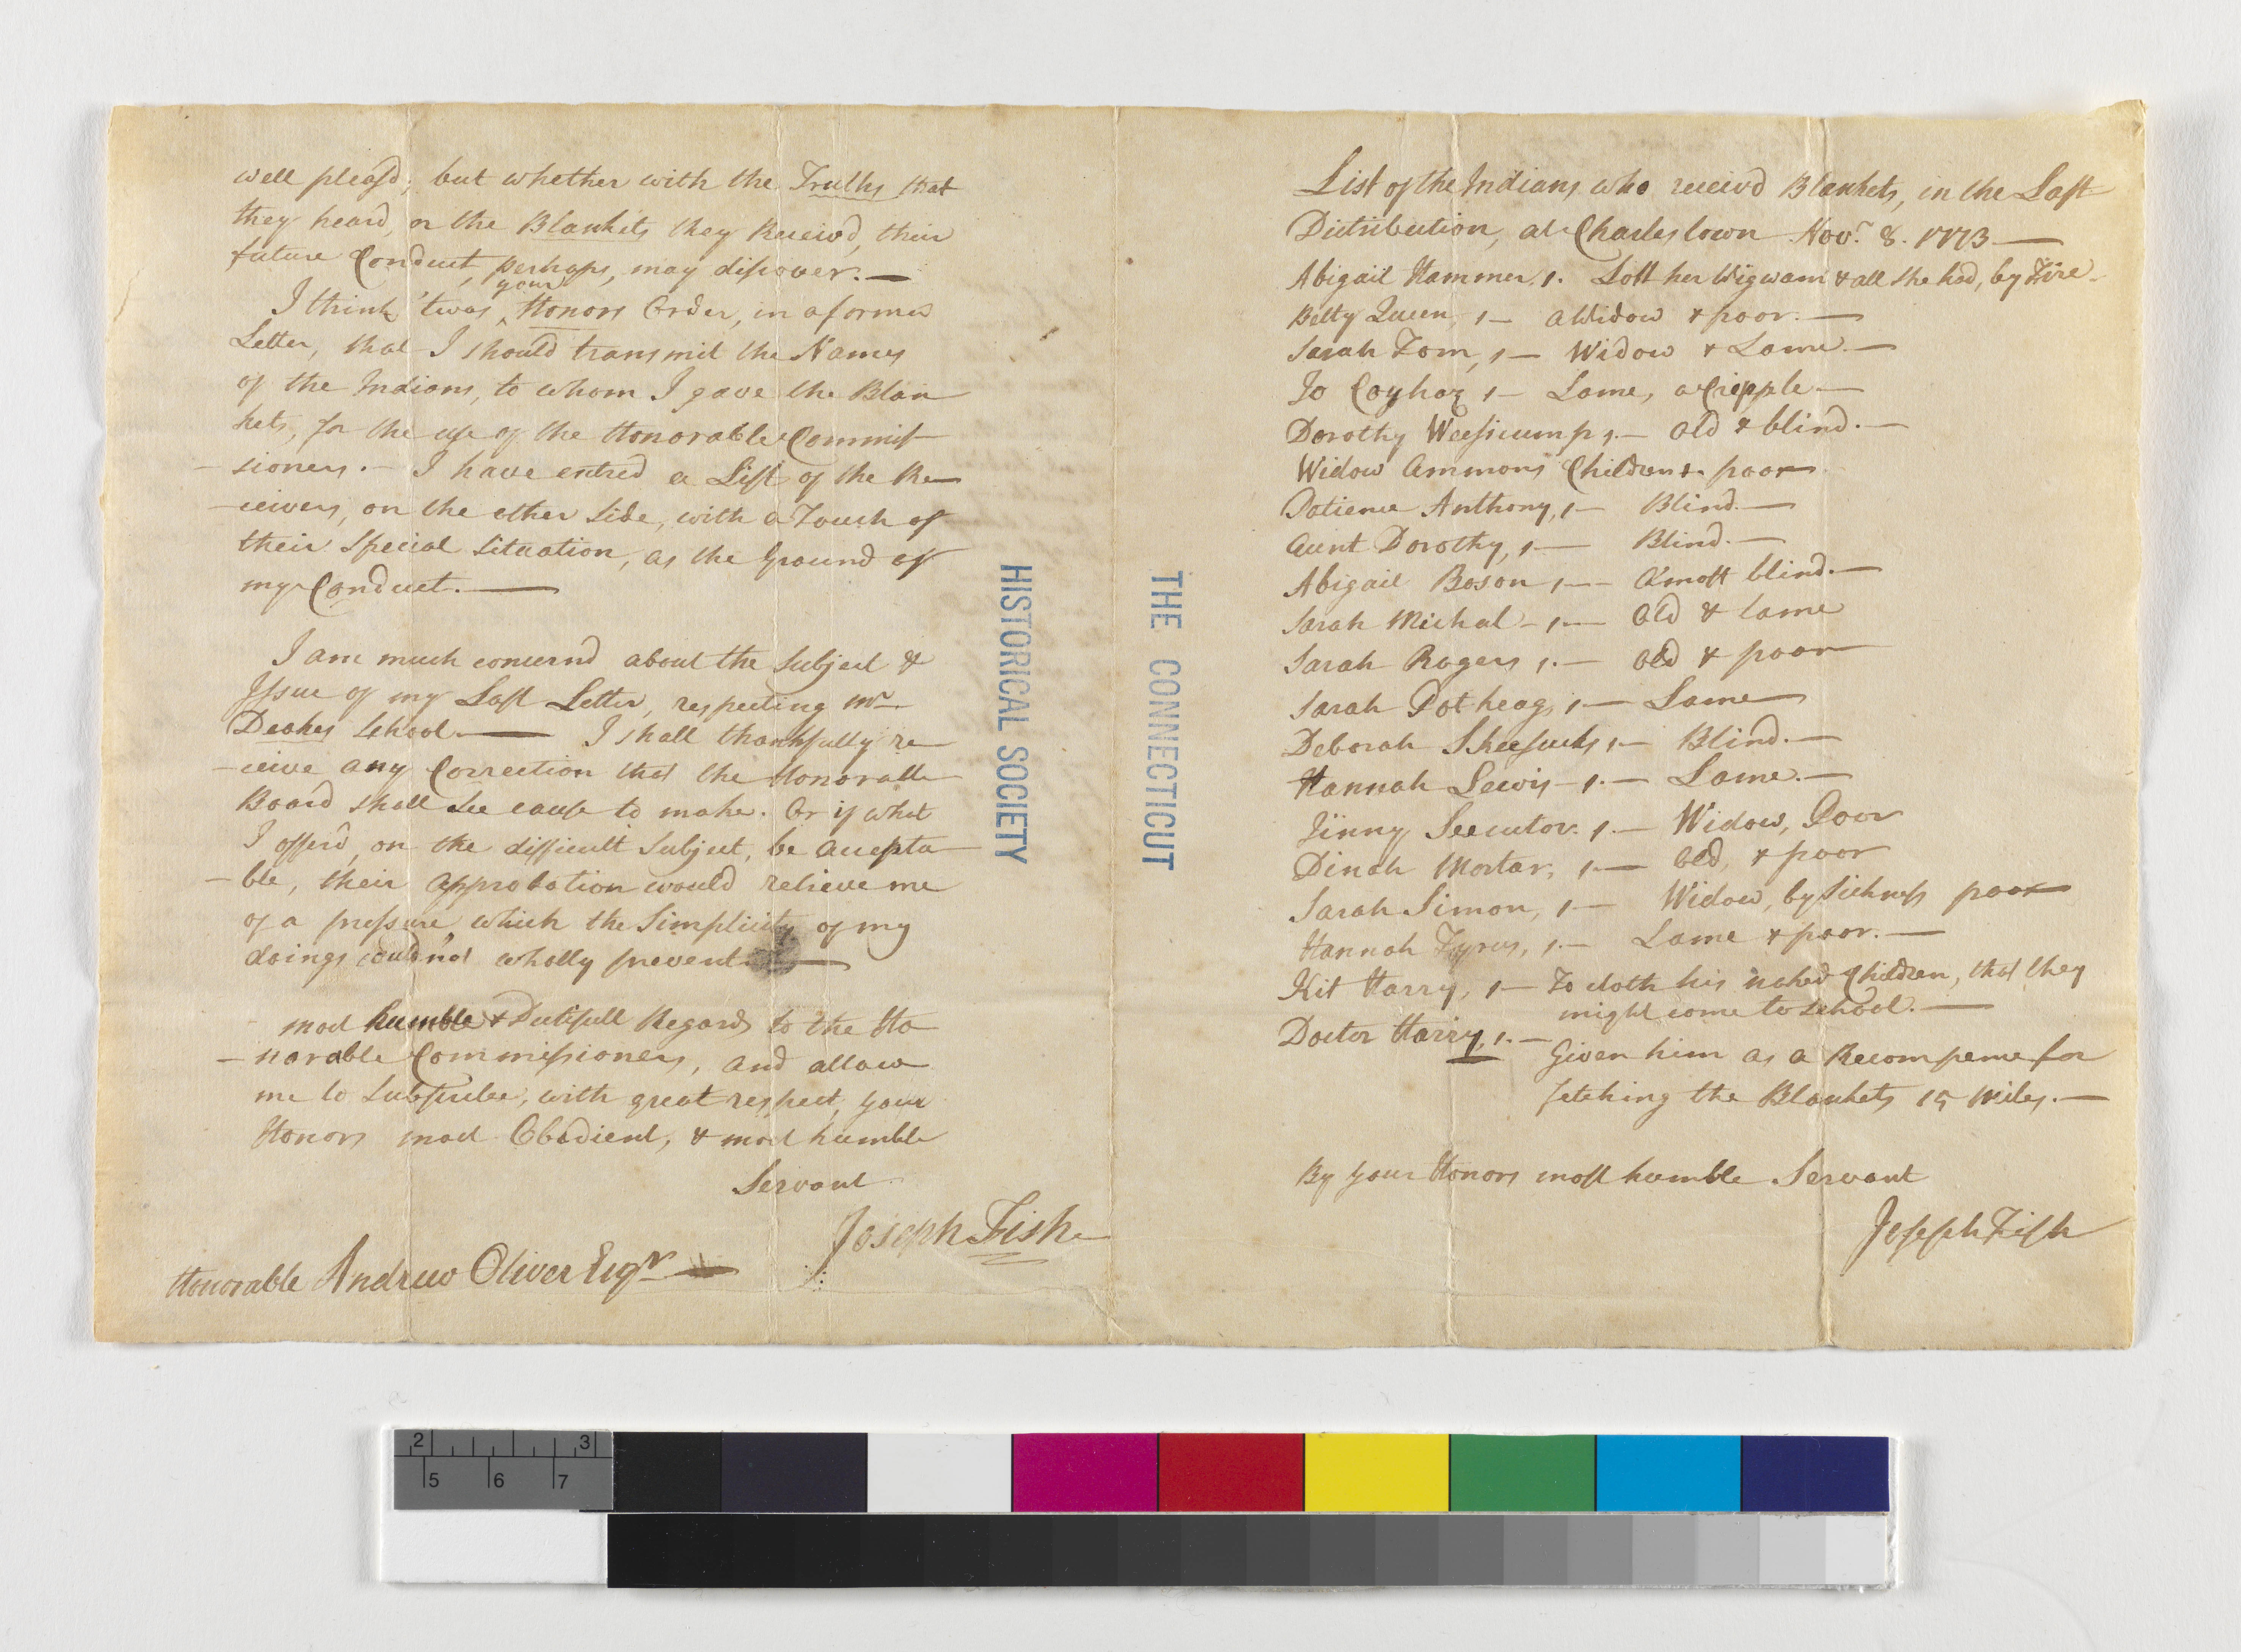 well pleas'd; but whether with the Truths that
they heard, or the Blankets they Receiv'd, their
future Conduct, perhaps, may discover.—
I think 'twas your Honors Order, in a former
Letter, that I should transmit the Names
of the Indians, to whom I gave the Blan
kets, for the use of the Honorable Commis
-sioners.— I have entred a List of the Re
-ceivers, on the other Side, with a Touch of
their Special Situation, as the Ground of
my Conduct.—
I am much concernd about the Subject &
Issue of my Last Letter, respecting Mr
Deakes School — I shall thankfully re
-ceive any Correction that the Honorable
Board shall See cause to make. Or if what
I offerd, on the difficult Subject, be accepta
-ble, their approbation would relieve me
of a pressure which the Simplicity of my
doings could not wholly prevent —
most humble & Dutifull Regards to the Ho
-norable Commissioners, and allow
me to Subscribe, with great respect, your
Honors most Obedient, & most humble
Servant
Joseph Fish
Honorable Andrew Oliver Esqr
HISTORICAL SOCIETY
THE CONNECTICUT
List of the Indians who receivd Blankets, in the Last
Distribution, at Charlestown Novr. 8. 1773—
Abigail Hammer, 1. Lost her Wigwam & all she had, by Fire
Betty Queen, 1— a Widow & poor.—
Sarah Tom, 1— Widow & Lame—
Jo Coyhoz 1— Lame, a Cripple—
Dorothy Weesicump 1.— old & blind.—
Widow Ammons Children 1. poor
Patience Anthony, 1— Blind.—
Aunt Dorothy, 1— Blind.—
Abigail Boson 1— Almost blind.—
Sarah Michal — 1.— Old & lame
Sarah Rogers 1.— old & poor
Sarah Potheag, 1— Lame
Deborah Sheesucks 1— Blind.—
Hannah Lewis — 1.— Lame.—
Jinny Seecutor. 1.— Widow, Poor
Dinah Mortar, 1.— old, & poor
Sarah Simon, 1— Widow, by Sickness poor
Hannah Tyrus, 1.— Lame & poor.—
Kit Harry, 1— To cloth his naked Children, that they
might come to School.—
Doctor Harry, 1.—
Given him as a Recompence for
fetching the Blankets 15 Miles.—
By your Honors most humble Servant
Joseph Fish
2 3
5 6 7